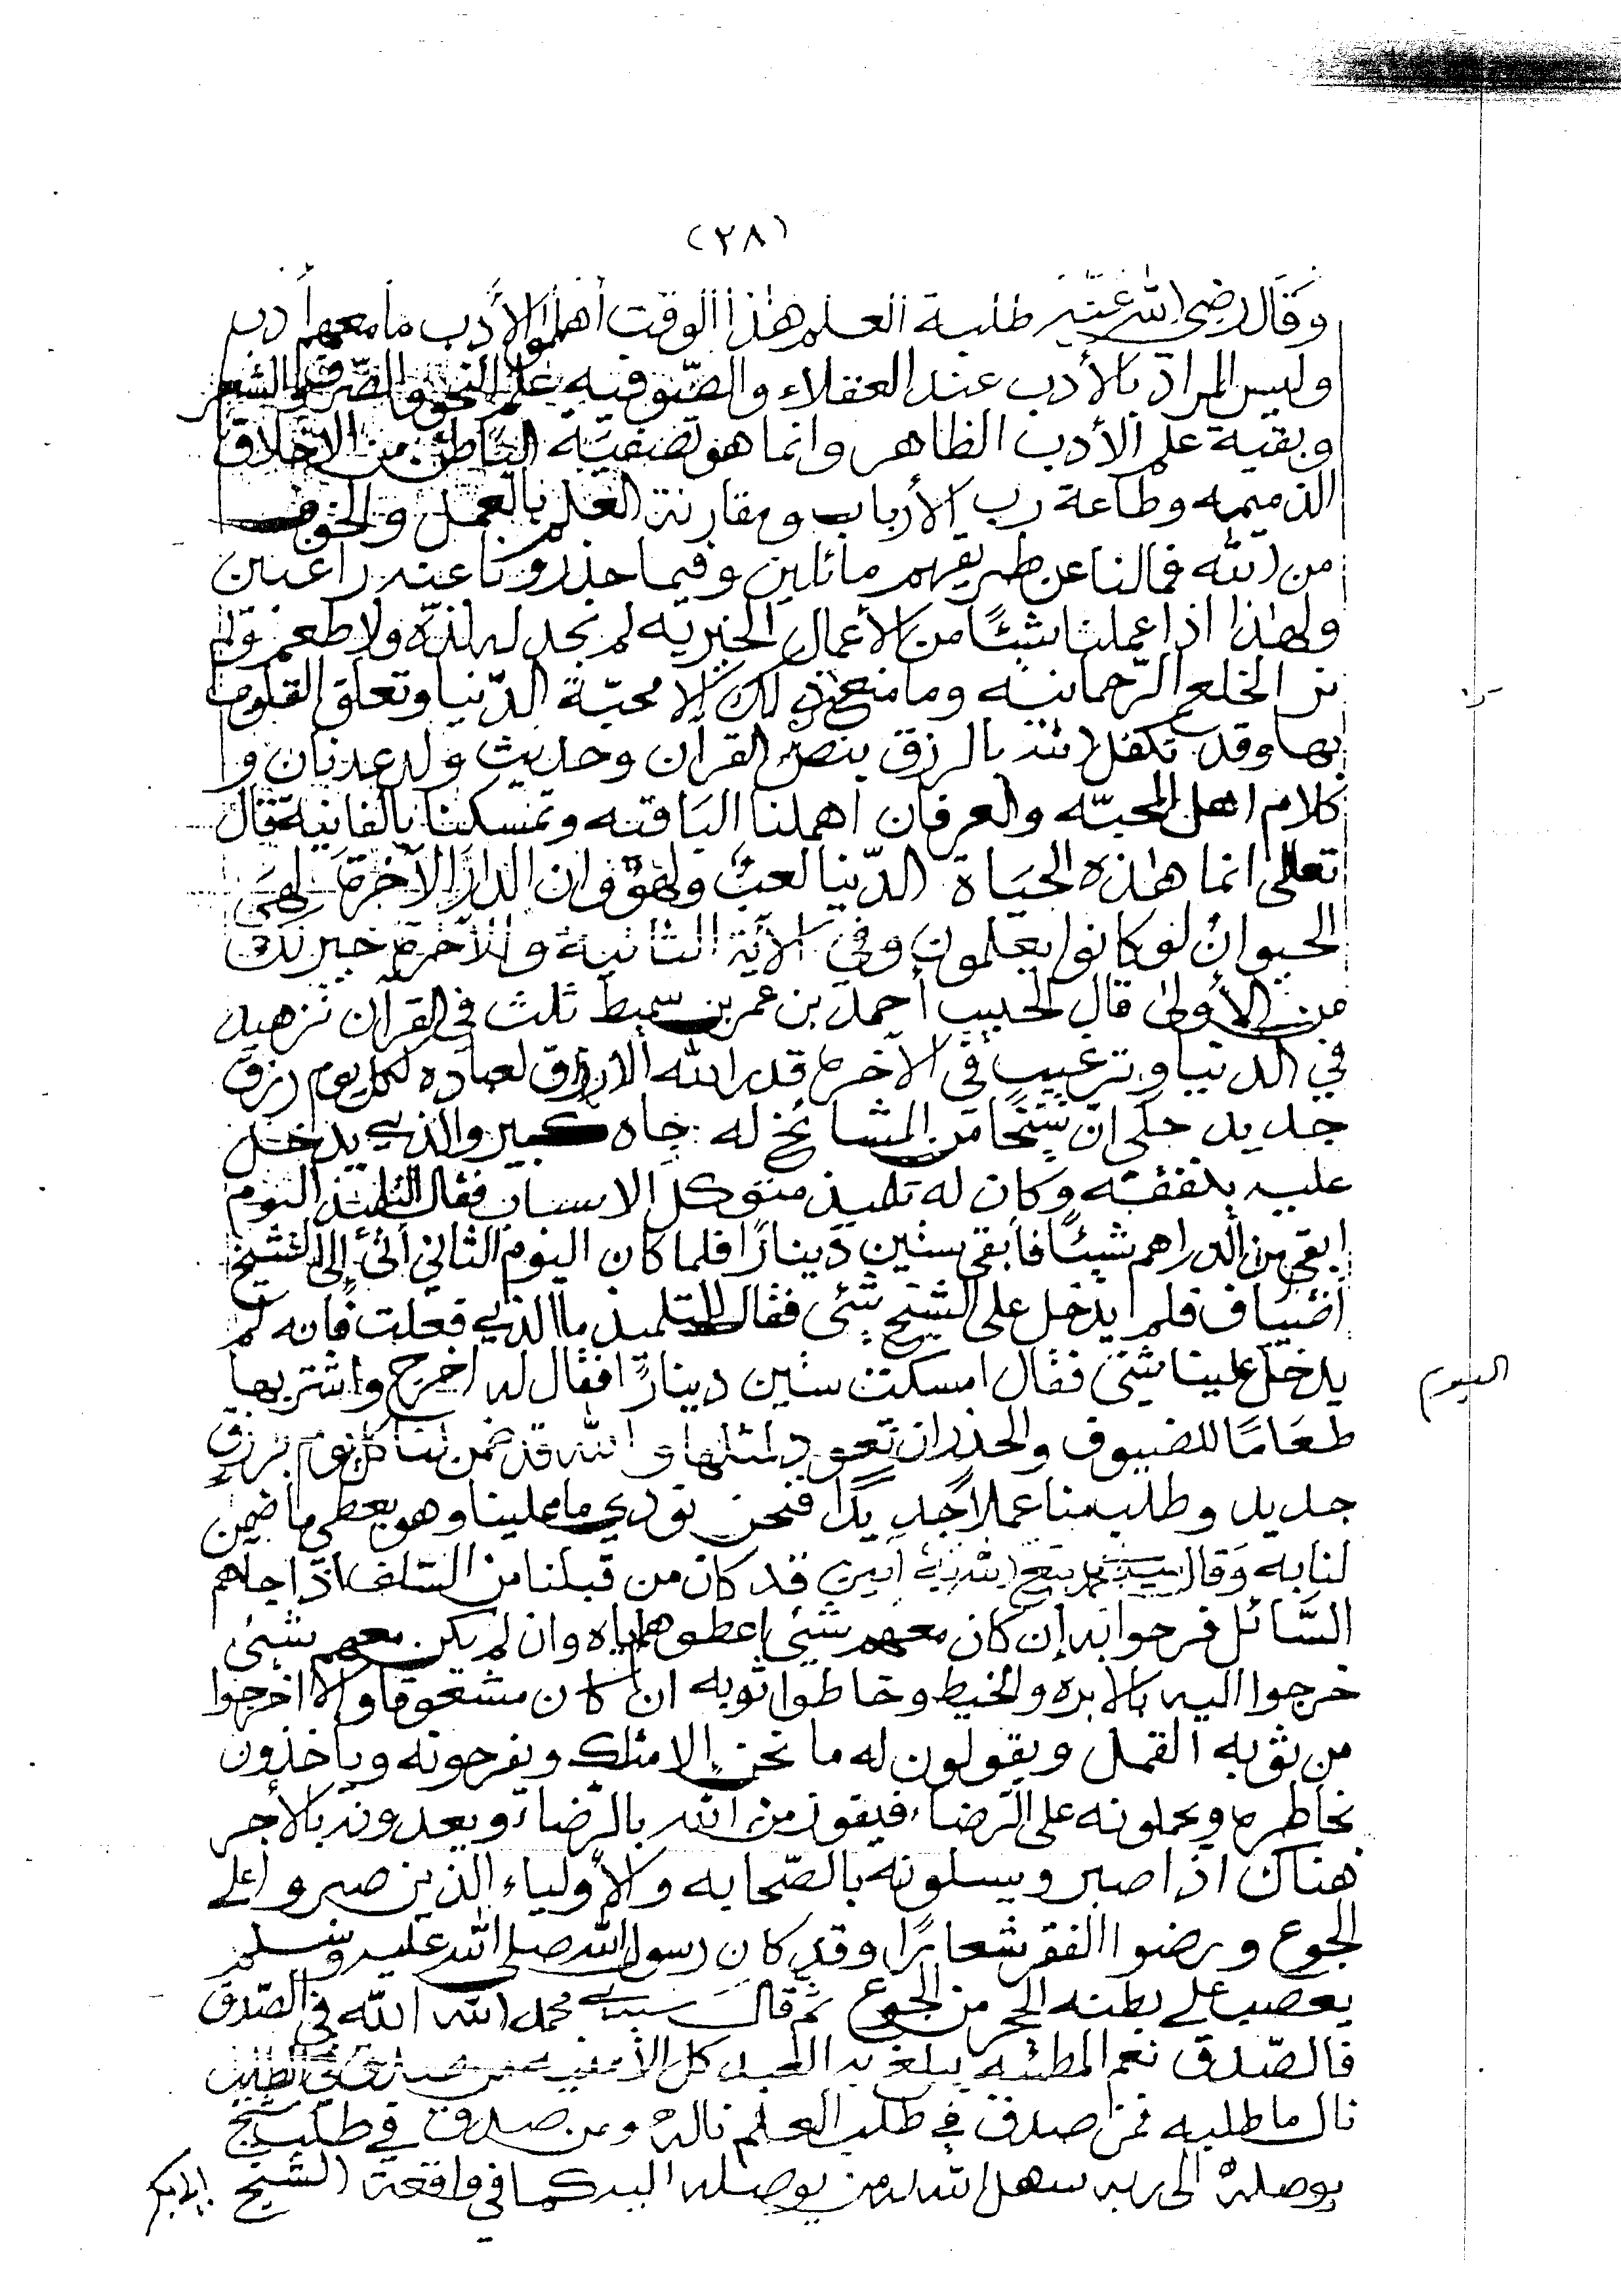 (٢٨)
وقال رضي الله عنه طلبة العلم هذا الوقت أهملوا الأدب ما معهم أدب
وليس المراد بالأدب عند العقلاء والصوفيه علم النحو والصرف والشعر
وبقية علم الأدب الظاهر وانما هو تصفية الباطن من الاخلاق
الذميمه وطاعة رب الأرباب ومقارنة العلم بالعمل والخوف
من الله فمالنا عن طريقهم مائلين وفيما حذرونا عنه راغبين
ولهذا اذا عملنا شيئًا من الأعمال الخيريه لم نجد له لذّه ولا طعم ولم
نر الخلع الرّحمانيه وما منع ذلك الا محبّة الدّنيا وتعلق القلوب
بها وقد تكفل الله بالرزق بنص القرآن وحديث ولد عدنان و
كلام اهل المحبّه والعرفان اهملنا الباقيه وتمسكنا بالفانية قال
تعالى انما هذه الحياة الدّنيا لعبٌ ولهوٌ وان الدارَ الآخرة لهيَ
الحيوانُ لو كانوا يعلمون وفي الآية الثانية والآخرة خير لك
من الأولى قال الحبيب أحمد بن عمر بن سميط ثلث في القرآن تزهيد
في الدنيا وترغيب في الآخره قدر الله الأرزاق لعباده لكل يوم رزق
جديد حكى ان شيخًا من المشائخ له جاه كبير والذي يدخل
عليه ينفقه وكان له تلميذ متوكل الاسباب فقال التلميذ اليوم
ابقي من الدراهم شيئًا فأبقى ستين دينارًا فلما كان اليوم الثاني أتى إلى الشيخ
أضياف فلم يدخل على الشيخ شئ فقال للتلميذ ما الذي فعلت فانه لم
يدخل علينا شئ فقال امسكت ستين دينارًا فقال له اخرج واشتر بها
اليوم
طعَامًا للضيوف والحذر ان تعود لمثلها والله قد ضمن لنا كل يوم برزقٍ
جديد وطلب منا عملاً جديدًا فنحن نودي ما علينا وهو يعطي ما ضمن
لنا به وَقال آمين قد كان من قبلنا من السّلف اذا جاهم
السّائل فرحوا به إن كان معهم شئي اعطوهم اياه وان لم يكن معهم شئي
خرجوا اليه بالابره والخيط وخاطوا ثوبه ان كان مشقوقا والا اخرجوا
من ثوبه القمل ويقولون له ما نحن إلا مثلك ويفرحونه وياخذون
بخاطره ويحملونه على الرضاء فيفوز من الله بالرّضاء ويعدونه بالأجر
هناك اذا صبر ويسلونه بالصّحابه والأولياء الذين صبروا على
الجوع ورضوا الفقر شعارًا وقد كان رسول الله صلى الله عليه وسلم
يعصب على بطنه الحجر من الجوع ثم قال سيدي محمد الله الله في الصّدق
فالصّدق نعم المطيّه يبلغ به العبد كل الأمنيه
نال ما طلبه فمن صدق في طلب العلم نالهُ ومن صدق في طلب شيخ
يوصلهُ الى ربه سهل الله له من يوصله اليه كما في واقعة الشيخ